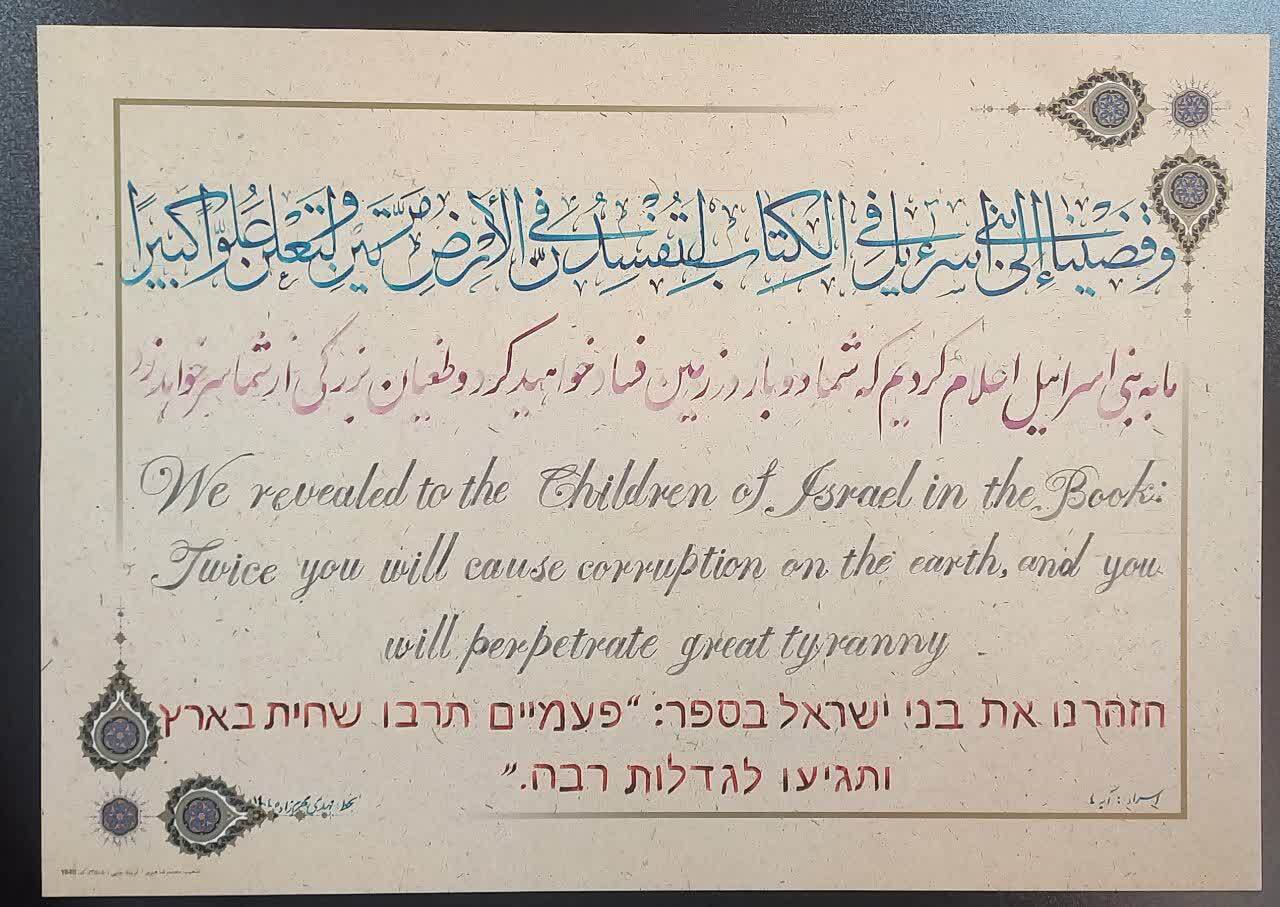 وَقَضَيْنَا إِلَىٰ بَنِي إِسْرَءِيلَ فِي الْكِتَابِ لَتُفْسِدُنَّ فِي الْأَرْضِ مَرَّتَيْنِ وَلَتَعْلُنَّ عُلُوًّا كَبِيرًا
ما به بنی اسرائیل اعلام کردیم که شما دوبار در زمین فساد خواهید کرد و طغیان بزرگی از شما سر خواهد زد
We revealed to the Children of Israel in the Book:
Twice you will cause corruption on the earth, and you
will perpetrate great tyranny
הזהרנו את בני ישראל בספר: "פעמיים תרבו שחית בארץ
ותגיעו לגדלות רבה."
اسراء: آیه ۴
بخط: مهدی